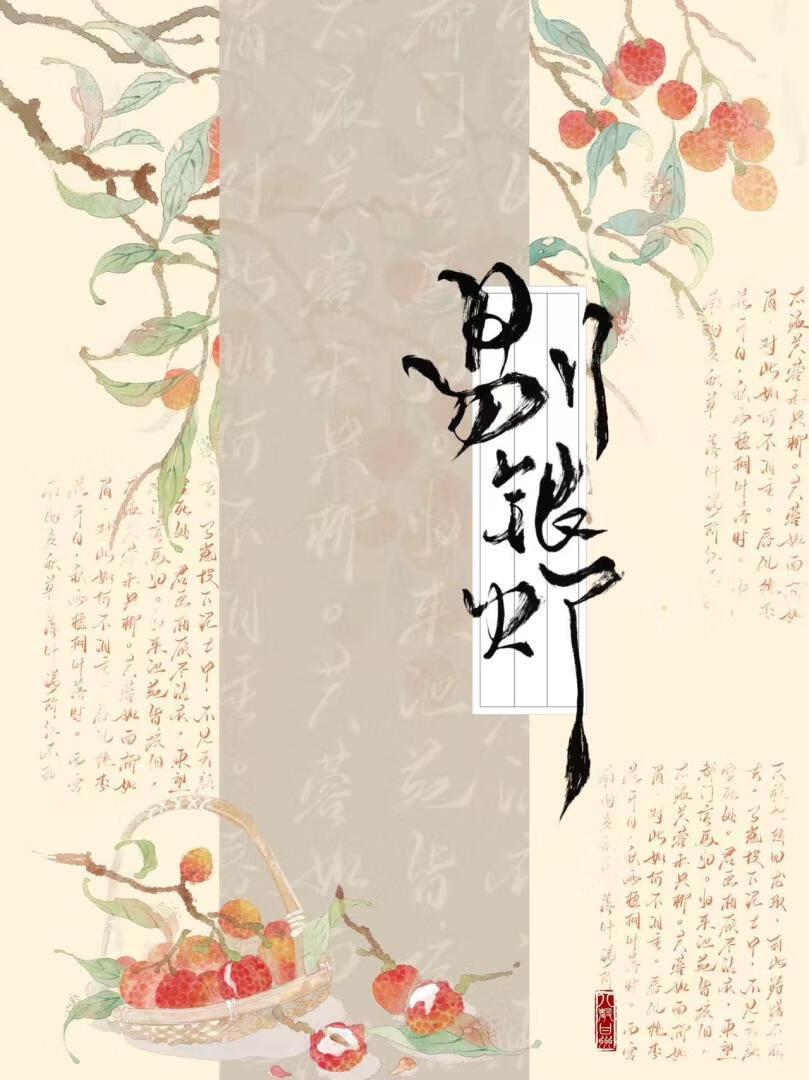 剔银灯
太液芙蓉未央柳。芙蓉如面柳如
眉,对此如何不泪垂。春风桃李
花开日,秋雨梧桐叶落时。西宫
南内多秋草,落叶满阶红不
都门信马归。归来池苑皆依
太液芙蓉未央柳。芙蓉如面
眉,对此如何不泪垂。春
去。马嵬坡下泥土中,不见玉颜
空死处。君臣相顾尽沾衣,东望
都门信马归。归来池苑皆依旧,
太液芙蓉未央柳。芙蓉如面柳如
眉,对此如何不泪垂。春风桃李
花开日,秋雨梧桐叶落时。西宫
南内多秋草,落叶满阶红不扫
天旋地转回龙驭,到此踌躇不能
去。马嵬坡下泥土中,不见玉颜
空死处。君臣相顾尽沾衣,东望
都门信马归。归来池苑皆依旧,
太液芙蓉未央柳。芙蓉如面柳如
眉,对此如何不泪垂。春风桃李
花开日,秋雨梧桐叶落时。西宫
南内多秋草,落叶满阶
八声甘州